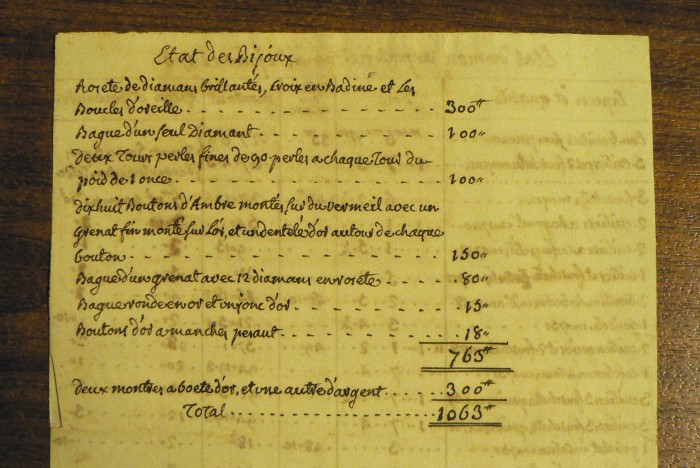 Etat des Bijoux
Rosete de diamans brillantés, Croix en Badine et Les
Boucles d'oreille - - - - - - - - - - - - 300ᵗᵗ
Bague d'un seul Diamant - - - - - - - - - 100"
deux Tours perles fines de 90 perles a chaque Tour du
poid de 1 once - - - - - - - - - - - - 100"
dixhuit Boutons d'Ambre montés sur du vermeil avec un
grenat fin monté sur L'or, et un dentelé d'or autour de chaque
bouton - - - - - - - - - - - - - - 150"
Bague d'un grenat avec 12 diamans en rosete - - - - 80"
Bague ronde en or et un jonc d'or - - - - - - - 15"
Boutons d'or a manches pesant - - - - - - - - 18"
763ᵗᵗ
deux montres a boete d'or, et une autre d'argent - - - - 300ᵗᵗ
Total - - - - - - - - - - - 1063ᵗᵗ